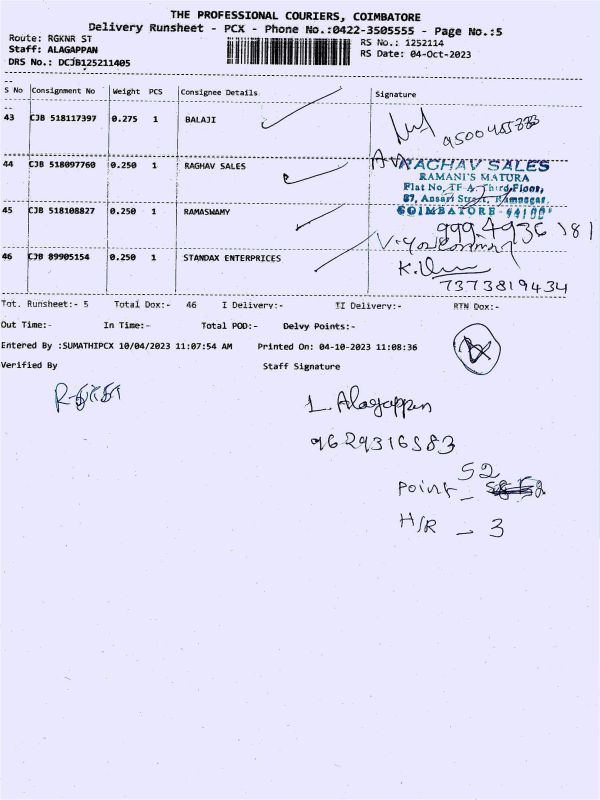 THE PROFESSIONAL COURIERS, COIMBATORE
Delivery Runsheet - PCX - Phone No.:0422-3505555 - Page No.:5
Route: RGKNR ST
RS No.: 1252114
Staff: ALAGAPPAN
RS Date: 04-Oct-2023
DRS No.: DCJB125211405
S No Consignment No Weight PCS Consignee Details Signature
43 CJB 518117397 0.275 1 BALAJI
44 CJB 518097760 0.250 1 RAGHAV SALES
RAGHAV SALES
RAMANI'S MATURA
Flat No, TF A, Third Floor,
87, Ansari Street, Ramnagar,
COIMBATORE
45 CJB 518108827 0.250 1 RAMASWAMY
9994936181
46 CJB 89905154 0.250 1 STANDAX ENTERPRICES
7373819434
Tot. Runsheet:- 5 Total Dox:- 46 I Delivery:- II Delivery:- RTN Dox:-
Out Time:- In Time:- Total POD:- Delvy Points:-
Entered By :SUMATHIPCX 10/04/2023 11:07:54 AM Printed On: 04-10-2023 11:08:36
Verified By Staff Signature
L. Alagappan
9629316583
52
Point -
H/R - 3